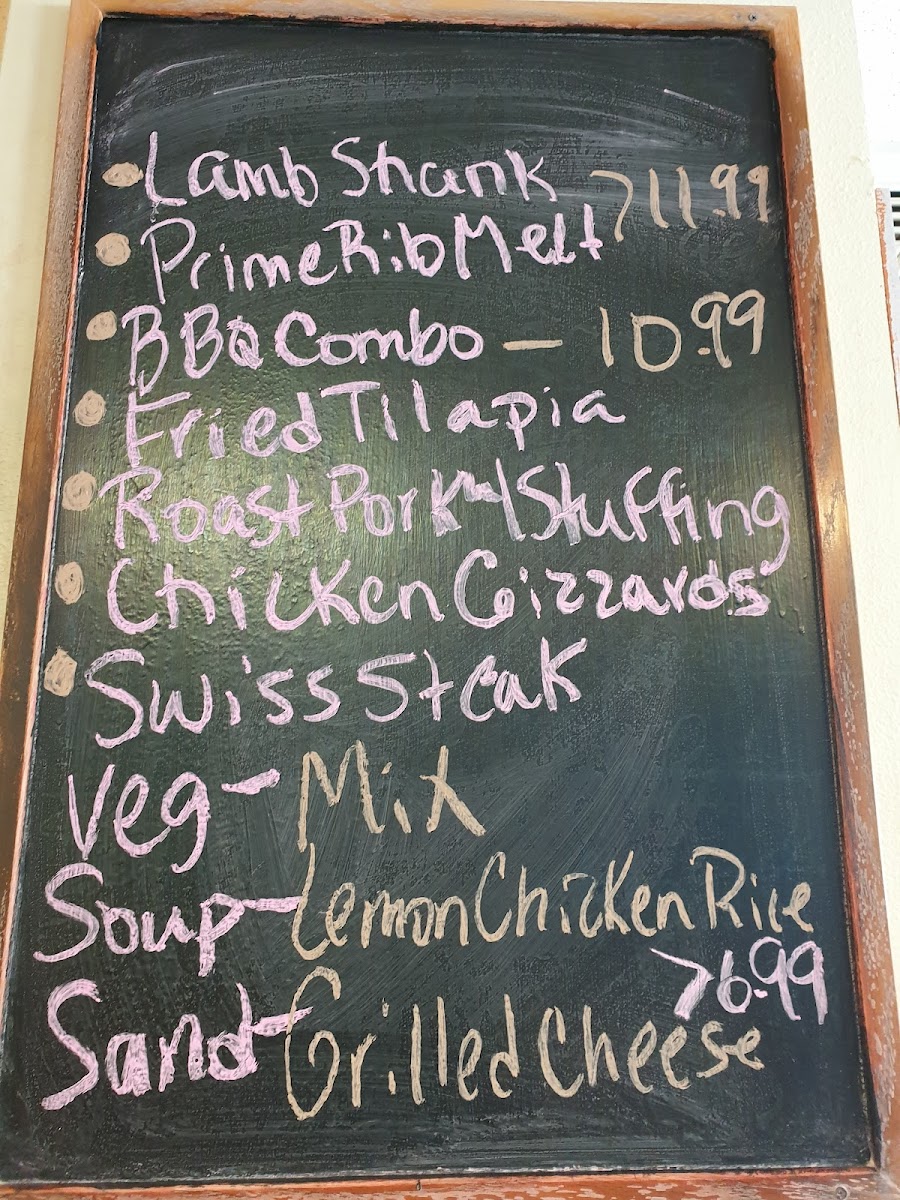 Lamb Shank
>11.99
Prime Rib Melt
BBQ Combo — 10.99
Fried Tilapia
Roast Pork w/ Stuffing
Chicken Gizzards
Swiss Steak
Veg - Mix
Soup - Lemon Chicken Rice
>6.99
Sand - Grilled Cheese